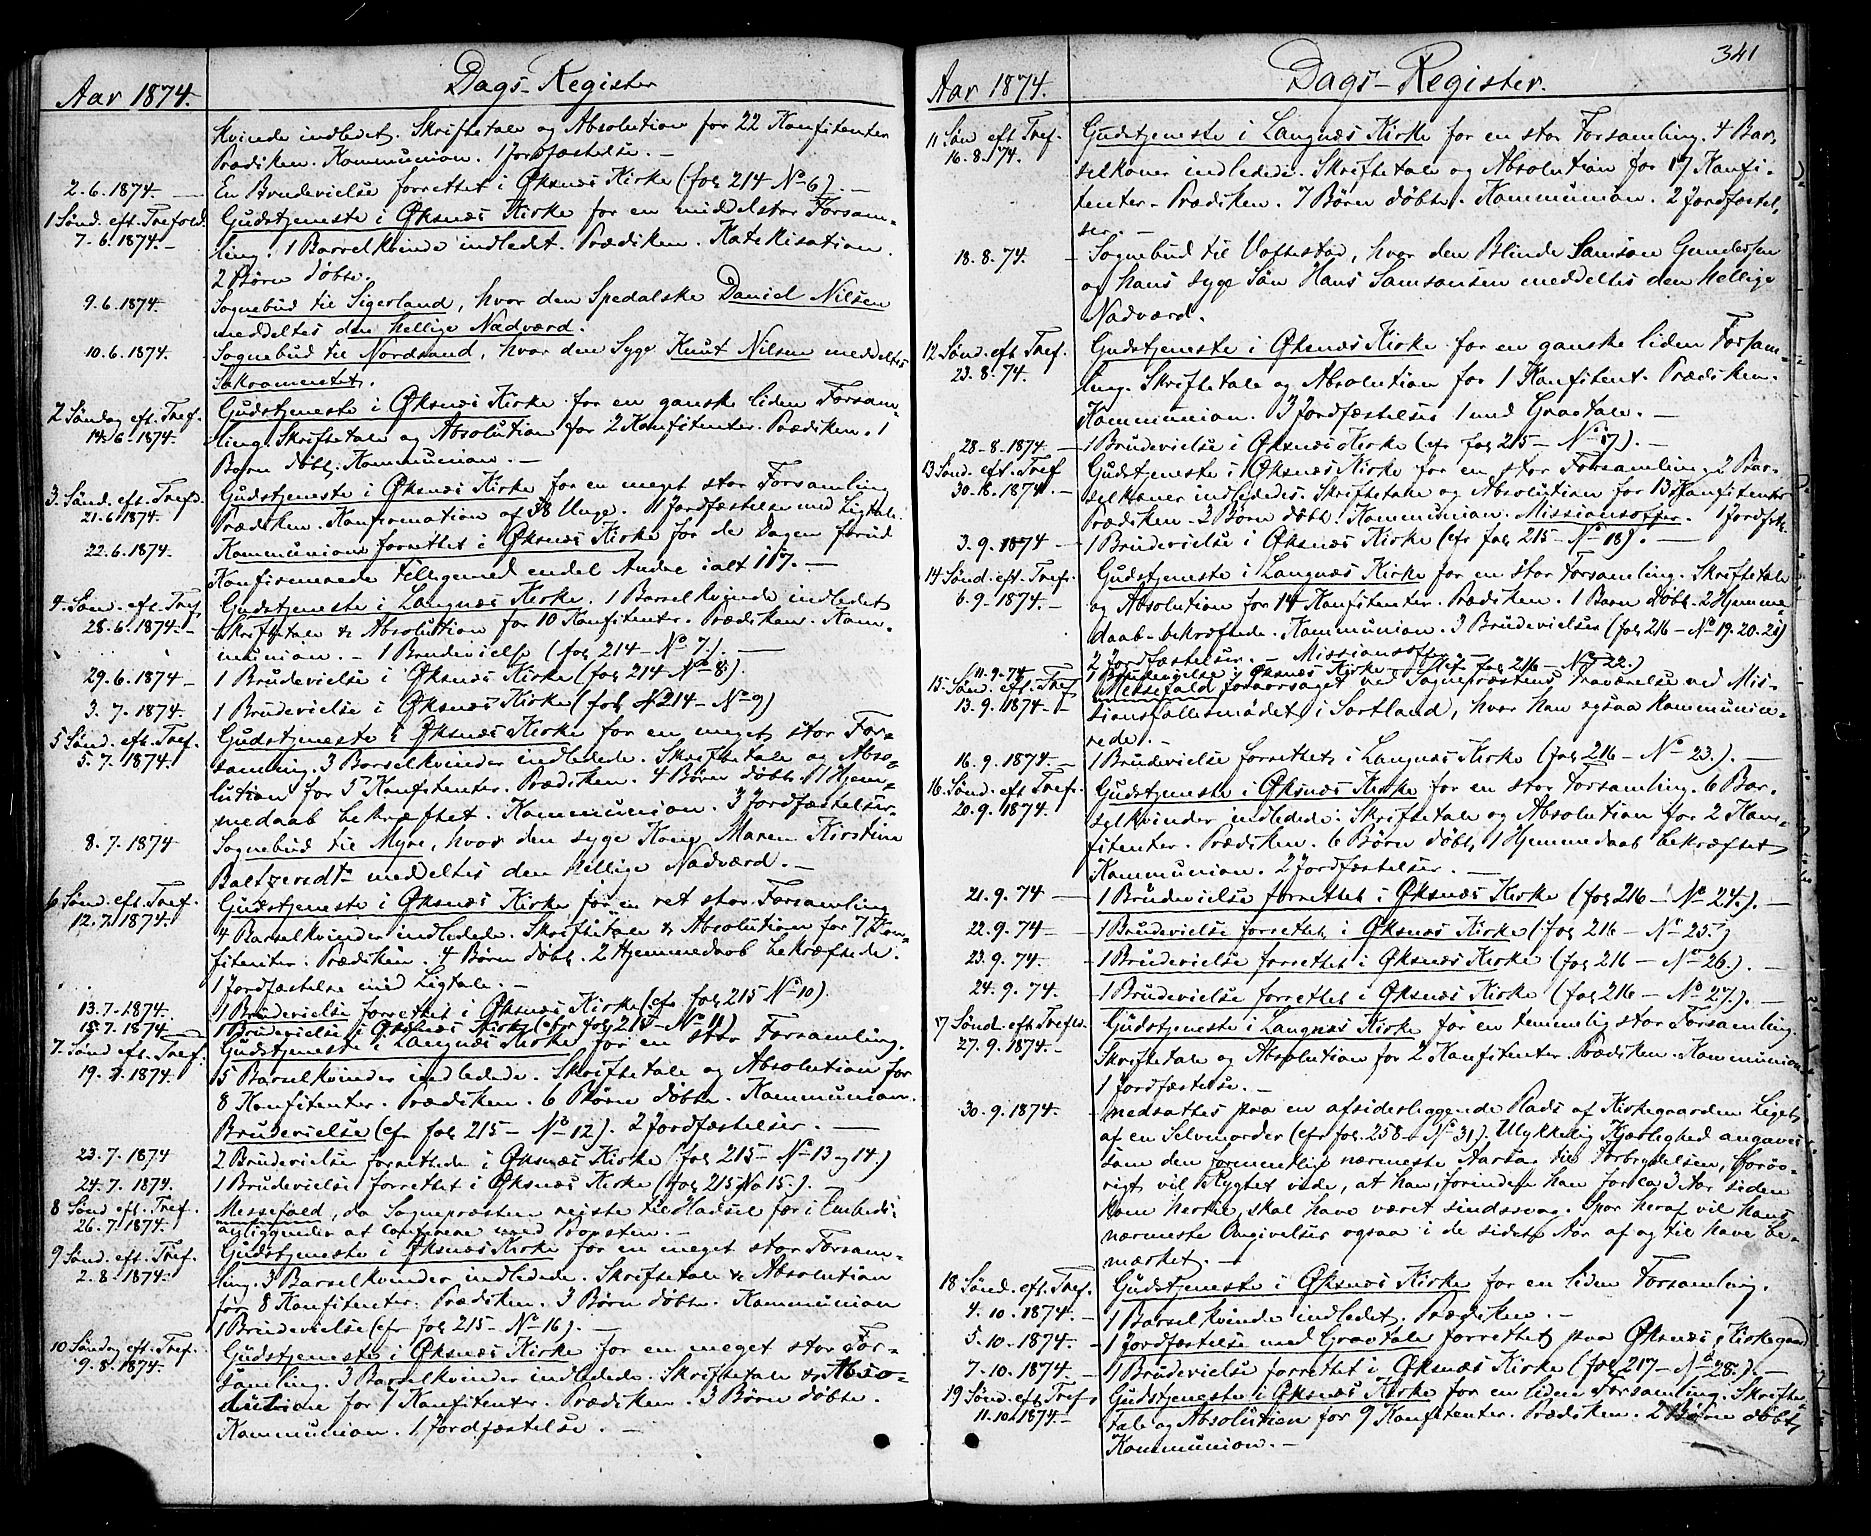 Aar 1874. Dags-Register
Kvinde indledet. Skriftetale og Absolution for 22 Konfitenter
Prædiken. Kommunion. 1 Jordfæstelse. —
2.6.1874. — En Brudevielse forrettet i Øksnæs Kirke (fol 214 No 6). —
1 Sønd. eft. Trefold. Gudstjeneste i Øksnæs Kirke for en middelstor Forsam-
7.6.1874. — ling. 1 Barselkvinde indledet. Prædiken. Katekisation.
2 Børn døbte.
9.6.1874. Sognebud til Sigerland, hvor den Spedalske Daniel Nilsen
meddeltes den hellige Nadværd.
10.6.1874. Sognebud til Nordsand, hvor den Syge Knut Nilsen meddeltes
Sakramentet.
2 Søndag eft. Tref. Gudstjeneste i Øksnæs Kirke for en ganske liden Forsam-
14.6.1874. ling. Skriftetale og Absolution for 2 Konfitenter. Prædiken. 1
Barn døbt. Kommunion. —
3. Sønd. eft. Trefd. Gudstjeneste i Øksnæs Kirke for en meget stor Forsamling
21.6.1874. Prædiken. Konfirmation af 38 Unge. 1 Jordfæstelse med Ligtale.
22.6.1874. Kommunion forrettet i Øksnæs Kirke for de Dagen forud
Konfirmerede tilligemed endel Andre ialt 117. —
4. Sønd. eft. Tref. Gudstjeneste i Langnæs Kirke. 1 Barselkvinde indledet
28.6.1874. — Skriftetale & Absolution for 10 Konfitenter. Prædiken. Kom-
munion. — 1 Brudevielse (fol 214 — No 7.). —
29.6.1874 — 1 Brudevielse i Øksnæs Kirke (fol 214 No 8).
3.7.1874 1 Brudevielse i Øksnæs Kirke (fol 214 — No 9)
5 Sønd. eft. Tref. Gudstjeneste i Øksnæs Kirke for en meget stor For-
5.7.1874. samling. 3 Barselkvinder indledede. Skriftetale og Abso-
lution for 5 Konfitenter. Prædiken. 4 Børn døbt. 1 Hjem-
medaab bekræftet. Kommunion. 3 Jordfæstelser.
8.7.1874 Sognebud til Myre, hvor den syge Kone Maren Kirstine
Baltzersdtr meddeltes den hellige Nadværd. —
6 Sønd. eft. Tref. Gudstjeneste i Øksnæs Kirke for en ret stor Forsamling
12.7.1874. 4 Barselkvinder indledede. Skriftetale & Absolution for 7 Kon-
fitenter. Prædiken. 4 Børn døbt. 2 Hjemmedaab bekræftede.
1 Jordfæstelse med Ligtale. —
13.7.1874. 1 Brudevielse forrettet i Øksnæs Kirke (cfr fol 215 No 10).
15.7.1874 1 Brudevielse i Øksnæs Kirke (cfr fol 215 — No 11)
7. Sønd eft. Tref. Gudstjeneste i Langnæs Kirke for en stor Forsamling.
19.7.1874. 5 Barselkvinder indledede. Skriftetale og Absolution for
8 Konfitenter. Prædiken. 6 Børn døbte. Kommunion.
Brudevielse (cfr fol 215 — No 12). 2 Jordfæstelser. —
23.7.1874 2 Brudevielser forrettede i Øksnæs Kirke (fol 215 — No 13 og 14.)
24.7.1874. 1 Brudevielse forrettet i Øksnæs Kirke (fol 215 No 15.).
8 Sønd eft. Tref. Messefald, da Sognepræsten reiste til Hadsel for i Embeds-
26.7.1874. anliggender at conferere med Provsten. —
9 Sønd. eft. Tref. Gudstjeneste i Øksnæs Kirke for en meget stor Forsam-
2.8.1874. ling. 3 Barselkvinder indledede. Skriftetale & Absolution
for 8 Konfitenter. Prædiken. 3 Børn døbte. Kommunion
1 Brudevielse (cfr fol 215 — No 16). —
10 Søndag eft. Tref. Gudstjeneste i Øksnæs Kirke for en meget stor For-
9.8.1874. samling. 3 Barselkvinder indledede. Skriftetale & Abso-
lution for 1 Konfitenter. Prædiken. 3 Børn døbte.
Kommunion. 1 Jordfæstelse. —
341
Aar 1874. Dags-Register.
11 Søn eft Tref. Gudstjeneste i Langnæs Kirke for en stor Forsamling. 4 Bar-
16.8.74. selkoner indledede. Skriftetale og Absolution for 17 Konfi-
tenter. Prædiken. 7 Børn døbte. Kommunion. 2 Jordfæstel-
ser. —
18.8.74. — Sognebud til Vottestad, hvor den Blinde Samson Gundersen
og hans syge Søn Hans Samsonsen meddeltes den hellige
Nadværd.
12 Sønd. eft Tref. Gudstjeneste i Øksnæs Kirke for en ganske liden Forsam-
23.8.74. ling. Skriftetale og Absolution for 1 Konfitent. Prædiken.
Kommunion. 3 Jordfæstelser 1 med Gravtale. —
28.8.1874 — 1 Brudevielse i Øksnæs Kirke (cfr fol 215 — No 17). —
13 Sønd. eft. Tref Gudstjeneste i Øksnæs Kirke for en stor Forsamling 2 Bar-
30.8.1874. — selkoner indledede. Skriftetale og Absolution for 13 Konfitenter
Prædiken. 3 Børn døbt. Kommunion. Missionsoffer. 1 Jordfst.
3.9.1874 — 1 Brudevielse i Øksnæs Kirke (cfr fol 215 — No 18). —
14 Sønd. eft. Tref. Gudstjeneste i Langnæs Kirke for en stor Forsamling. Skriftetale
6.9.1874. — og Absolution for 14 Konfitenter. Prædiken. 1 Barn døbt. 2 Hjemme-
daab bekræftede. Kommunion. 3 Brudevielser (fol 216 — No 19.20.21)
2 Jordfæstelser. — Missionsoffer.
11.9.74 1 Brudevielse i Øksnæs Kirke — (cfr fol 216 — No 22.)
15. Sønd. eft. Tref Messefald foraarsaget ved Sognepræstens Fraværelse ved Mis-
13.9.1874 — sionsfællesmødet i Sortland, hvor han ogsaa kommunice-
rede. —
16.9.1874 — 1 Brudevielse forrettet i Langnæs Kirke (fol 216 — No 23.). —
16. Sønd. eft Tref. Gudstjeneste i Øksnæs Kirke for en stor Forsamling. 6 Bar-
20.9.1874. selkvinder indledede. Skriftetale og Absolution for 2 Kon-
fitenter. Prædiken. 6 Børn døbt, 1 Hjemmedaab bekræftet
Kommunion. 2 Jordfæstelser. —
21.9.74 — 1 Brudevielse forrettet i Øksnæs Kirke (fol 216 — No 24.). —
22.9.74 — 1 Brudevielse forrettet i Øksnæs Kirke (fol 216 — No 25.)
23.9.74. — 1 Brudevielse forrettet i Øksnæs Kirke (fol 216 — No 26.). —
24.9.74. — 1 Brudevielse forrettet i Øksnæs Kirke (fol 216 — No 27.). —
17 Sønd. eft. Trefld. Gudstjeneste i Langnæs Kirke for en temmelig stor Forsamling.
27.9.1874. — Skriftetale og Absolution for 2 Konfitenter. Prædiken. Kommunion
1 Jordfæstelse. —
30.9.1874. — nedsattes paa en afsidesliggende Plads af Kirkegaarden Liget
af en Selvmorder (cfr fol. 258 — No 31). Ulykkelig Kjærlighed angaves
som den formentlig nærmeste Aarsag til Forbrydelsen, forøv-
rigt vil Rygtet vide, at han, forinden han for ca 3 Aar siden
kom herhen, skal have været sindssvag. Spor heraf vil hans
nærmeste Omgivelser ogsaa i de sidste Aar af og til have be-
mærket. —
18 Sønd. eft. Tref. Gudstjeneste i Øksnæs Kirke for en liden Forsamling.
4.10.1874. — 1 Barselkvinde indledet. Prædiken. —
5.10.1874. — 1 Jordfæstelse med Gravtale forrettet paa Øksnæs Kirkegaard
7.10.1874. — 1 Brudevielse forrettet i Øksnæs Kirke (fol 217 — No 28.). —
19 Sønd. eft. Tref. Gudstjeneste i Øksnæs Kirke for en liden Forsamling. Skrifte-
11.10.1874. — tale og Absolution for 9 Konfitenter. Prædiken. 2 Børn døbt,
Kommunion. —